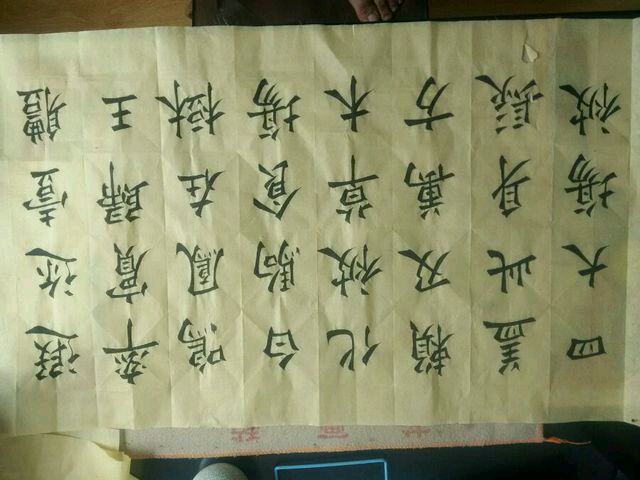 遐迩壹體
率賓歸王
鳴鳳在樹
白駒食場
化被草木
賴及萬方
蓋此身髮
四大場被